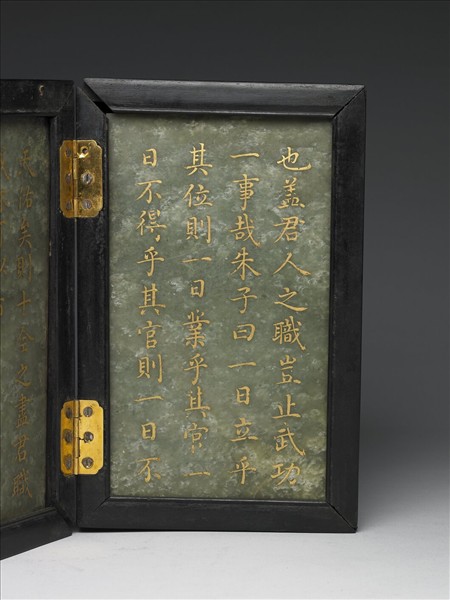 也蓋君人之職豈止武功
一事哉朱子曰一日立乎
其位則一日業乎其官一
日不得乎其官則一日不
矣則十全之盡君職